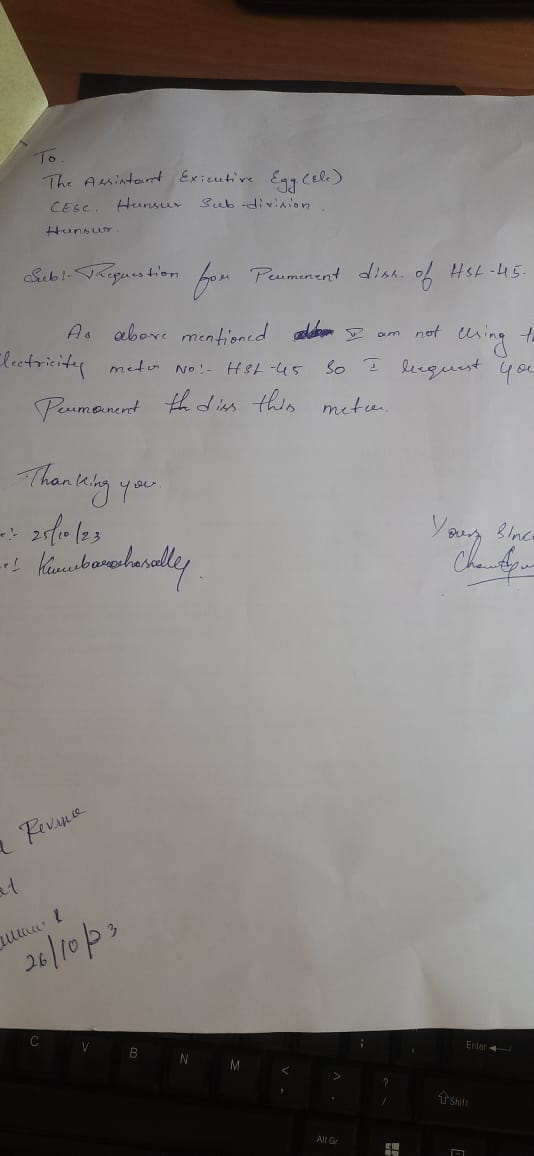 To.
The Assistant Exicutive Egg (ele)
CESC. Hunsur Sub-division.
Hunsur.
Sub:- Requestion for Permenent diss. of HSL-45.
As above mentioned I am not Using t
lectricity meter No:- HSL-45 So I request you
Permanent th diss this meter.
Thanking you
25/10/23
Yours Since
Revenue
26/10/23
C V B N M < , > . ? / ; Enter
Shift
Alt Gr